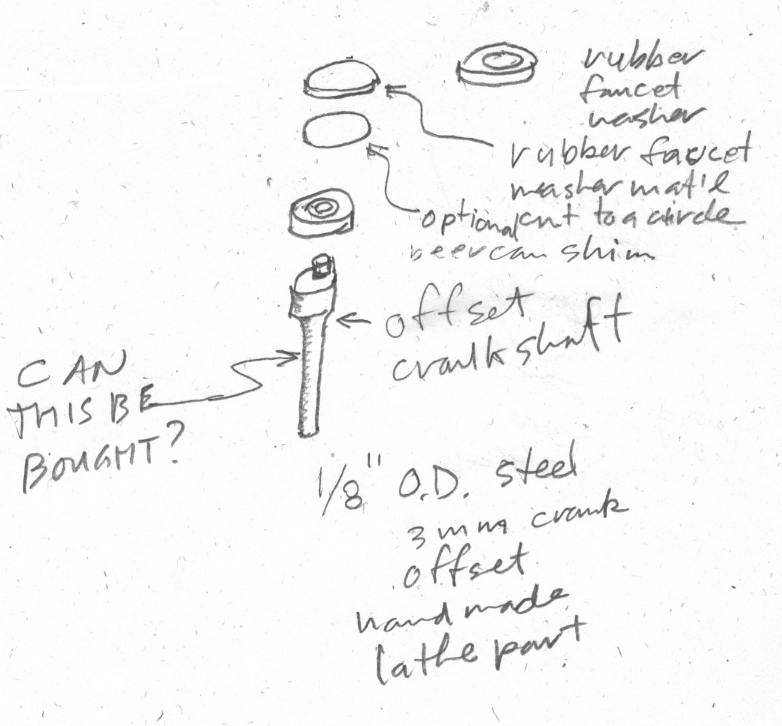 rubber
faucet
washer
rubber faucet
washer mat'l
optional cut to a circle
beercan shim
offset
crankshaft
CAN
THIS BE
BOUGHT?
1/8" O.D. steel
3 mm crank
offset
hand made
lathe part